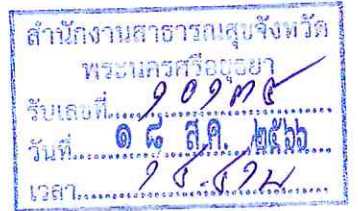 สำนักงานสาธารณสุขจังหวัด
พระนครศรีอยุธยา
รับเลขที่
วันที่ ๑๘ ส.ค. ๒๕๖๖
เวลา